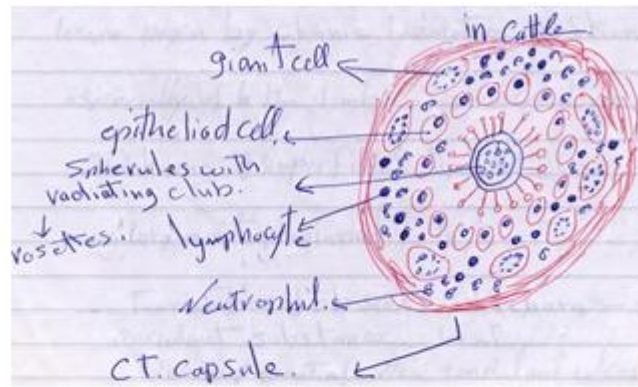 in cattle
giant cell
epithelioid cell.
Spherules with
radiating club.
rosettes.
lymphocyte
Neutrophil.
CT. capsule.